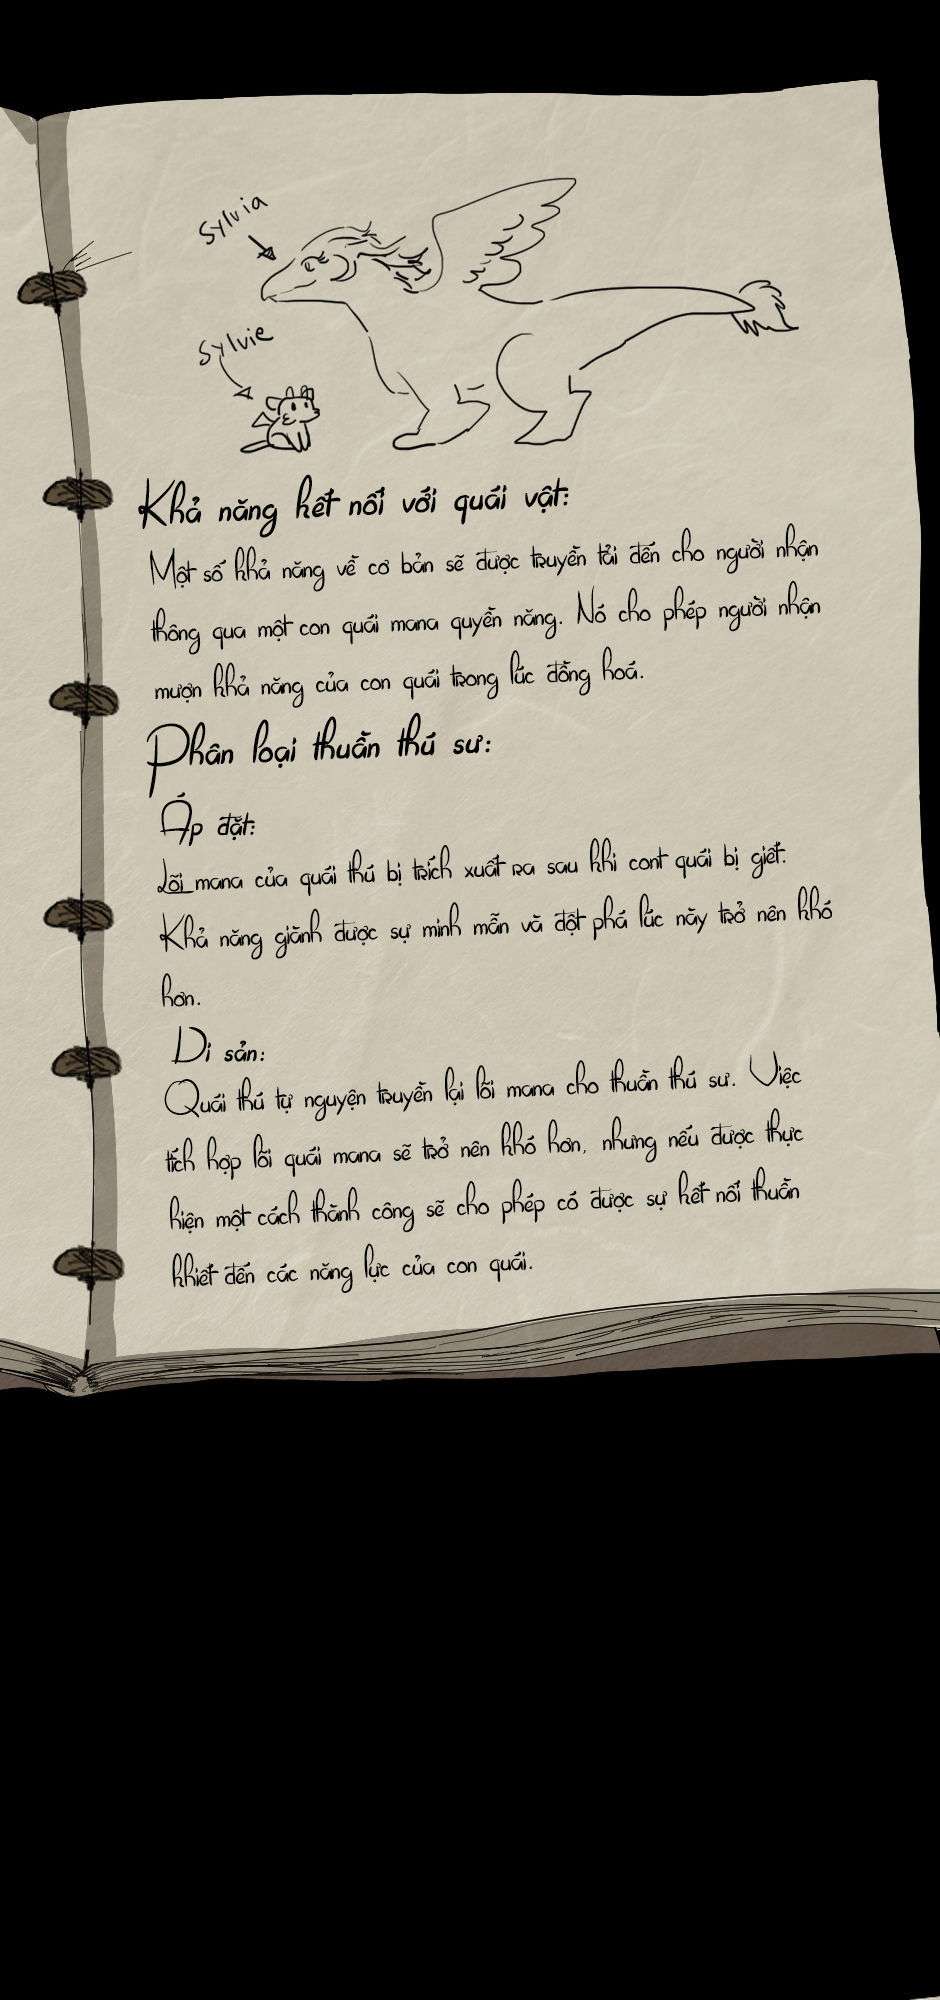 Sylvia
Sylvie
Khả năng kết nối với quái vật:
Một số khả năng về cơ bản sẽ được truyền tải đến cho người nhận
thông qua một con quái mana quyền năng. Nó cho phép người nhận
mượn khả năng của con quái trong lúc đồng hoá.
Phân loại thuần thú sư:
Áp đặt:
Lõi mana của quái thú bị trích xuất ra sau khi cont quái bị giết.
Khả năng giành được sự minh mẫn và đột phá lúc này trở nên khó
hơn.
Di sản:
Quái thú tự nguyện truyền lại lõi mana cho thuần thú sư. Việc
tích hợp lõi quái mana sẽ trở nên khó hơn, nhưng nếu được thực
hiện một cách thành công sẽ cho phép có được sự kết nối thuần
khiết đến các năng lực của con quái.